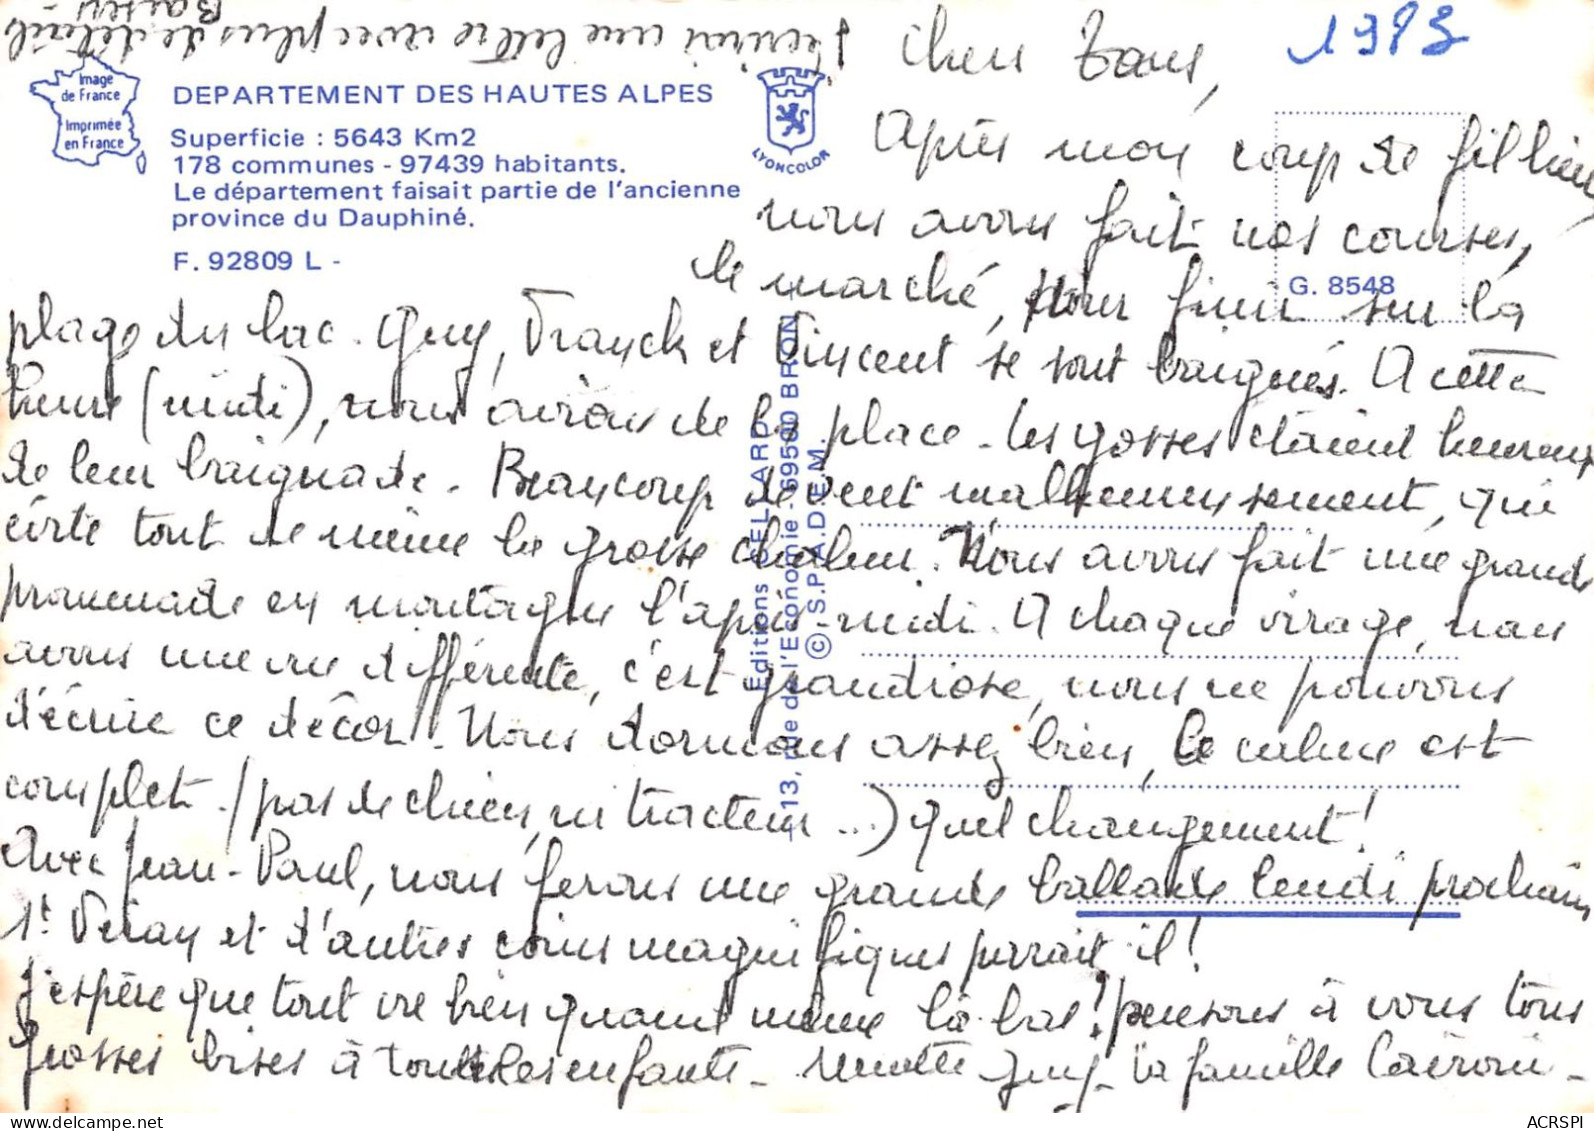 J'écrirai une lettre avec plus de détails
Baisers
Image
de France
Imprimée
en France
DEPARTEMENT DES HAUTES ALPES
Superficie : 5643 Km2
178 communes - 97439 habitants.
Le département faisait partie de l'ancienne
province du Dauphiné.
F. 92809 L -
LYONCOLOR
G. 8548
Editions CELLARD
13, rue de l'Economie - 69500 BRON
© S.P.A.D.E.M.
1983
Chers Tous,
Après mon coup de fil hier,
nous avons fait nos courses,
le marché, pour finir sur la
plage du lac. Guy, Franck et Vincent se sont baignés. A cette
heure (midi), nous avions de la place. Les gosses étaient heureux
de leur baignade. Beaucoup de vent malheureusement, qui
évite tout de même la grosse chaleur. Nous avons fait une grande
promenade en montagne l'après-midi. A chaque virage, nous
avons une vue différente, c'est grandiose, nous ne pouvons
décrire ce décor. Nous dormons assez bien, le calme est
complet. (pas de chien, ni tracteur...) Quel changement!
Avec Jean-Paul, nous ferons une grande ballade lundi prochain
St Veran et d'autres coins magnifiques parait il!
J'espère que tout va bien quand même là-bas! pensons à vous tous
Grosses bises à toutes les enfants - Guy - la famille
ACRSPI